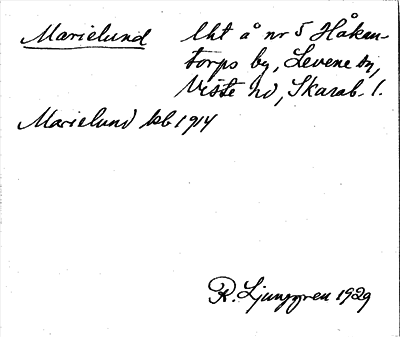 Marielund lht å nr 5 Håken-
torps by, Levene sn,
Viste hd, Skarab. l.
Marielund kb 1914
R. Ljunggren 1929